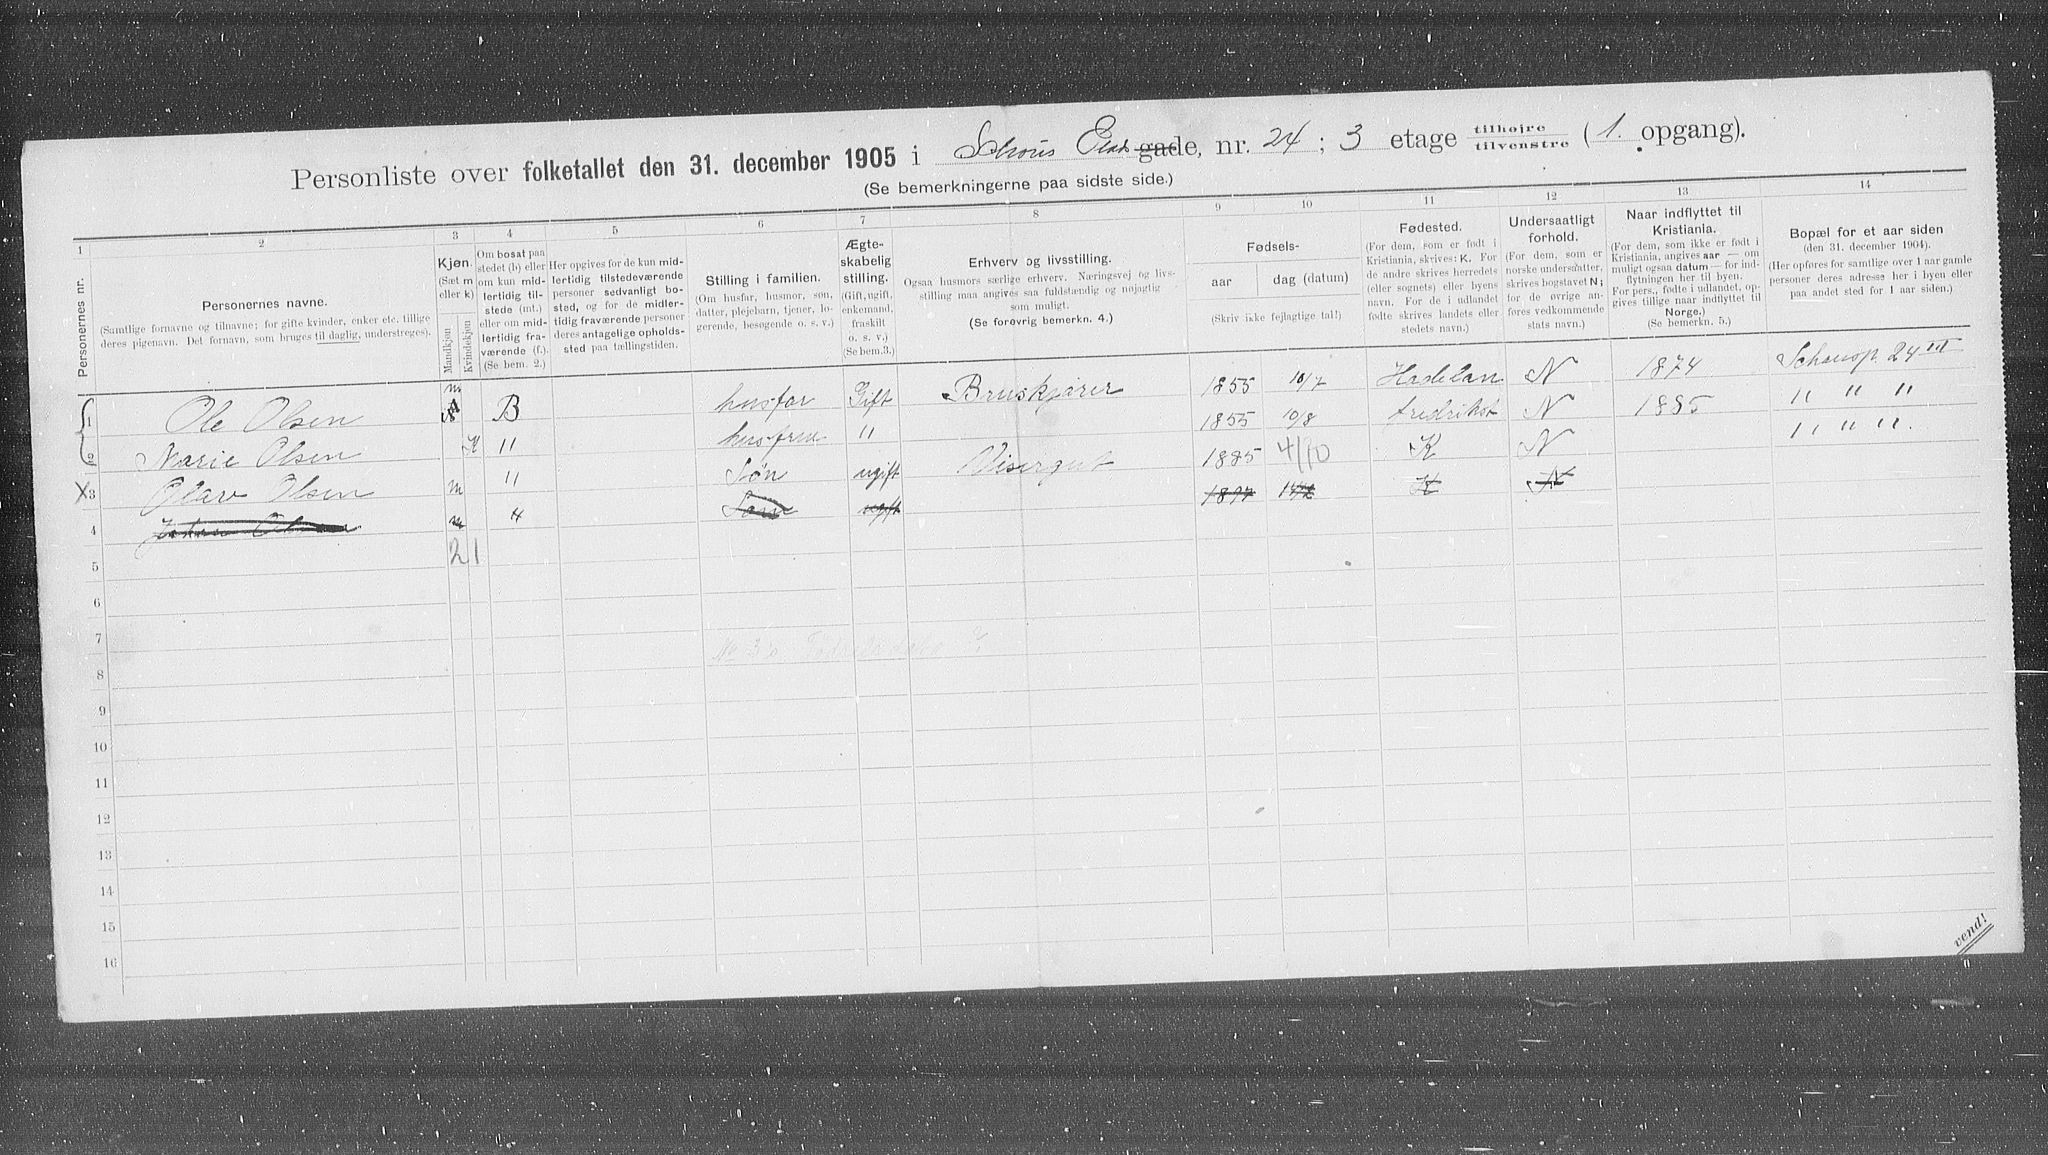 Personliste over folketallet den 31. december 1905 i Schous Plads gade, nr. 24 ; 3 etage tilhøire tilvenstre ( 1. opgang).
(Se bemerkningerne paa sidste side.)
1 2 3 4 5 6 7 8 9 10 11 12 13 14
Personernes nr.
Personernes navne.
(Samtlige fornavne og tilnavne; for gifte kvinder, enker etc. tillige
deres pigenavn. Det fornavn, som bruges til daglig, understreges).
Kjøn.
(Sæt m
eller k)
Mandkjøn
Kvindekjøn
Om bosat paa
stedet (b) eller
om kun mid-
lertidig til-
stede (mt.)
eller om mid-
lertidig fra-
værende (f.)
(Se bem. 2.)
Her opgives for de kun mid-
lertidig tilstedeværende
personer sedvanligt bo-
sted, og for de midler-
tidig fraværende personer
deres antagelige opholds-
sted paa tællingstiden.
Stilling i familien.
(Om husfar, husmor, søn,
datter, plejebarn, tjener, lo-
gerende, besøgende o. s. v.)
Ægte-
skabelig
stilling.
(Gift, ugift,
enkemand,
fraskilt
o. s. v.)
(Se bem. 3.)
Erhverv og livsstilling.
Ogsaa husmors særlige erhverv. Næringsvej og livs-
stilling maa angives saa fuldstændig og nøjagtig
som muligt.
(Se forøvrig bemerkn. 4.)
Fødsels-
aar
dag (datum)
(Skriv ikke fejlagtige tal!)
Fødested.
(For dem, som er født i
Kristiania, skrives: K. For
de andre skrives herredets
(eller sognets) eller byens
navn. For de i udlandet
fødte skrives landets eller
stedets navn.)
Undersaatligt
forhold.
(For dem, som er
norske undersaatter,
skrives bogstavet N;
for de øvrige an-
føres vedkommende
stats navn.)
Naar indflyttet til
Kristiania.
(For dem, som ikke er født i
Kristiania, angives aar — om
muligt ogsaa datum — for ind-
flytningen her til byen.
For pers., født i udlandet, op-
gives tillige naar indflyttet til
Norge.)
(Se bemerkn. 5.)
Bopæl for et aar siden
(den 31. december 1904).
(Her opføres for samtlige over 1 aar gamle
personer deres adresse her i byen eller
paa andet sted for 1 aar siden.)
1 Ole Olsen m B husfar Gift Bruskjører 1855 10/7 Hadelan N 1874 Schousp 24 III
2 Marie Olsen K " husfrue " 1855 10/8 Fredrikst N 1885 " " "
X 3 Olav Olsen m " Søn ugift Visergut 1885 4/10 K N " " "
4 Johan Olsen m " Søn ugift 1897 K N
2 1
5
6
7
8
9
10
11
12
13
14
15
16
vend!